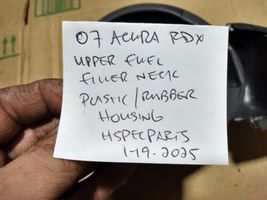 07 ACURA RDX
UPPER FUEL
FILLER NECK
PLASTIC/RUBBER
HOUSING
HSPECPARTS
1-19-2025